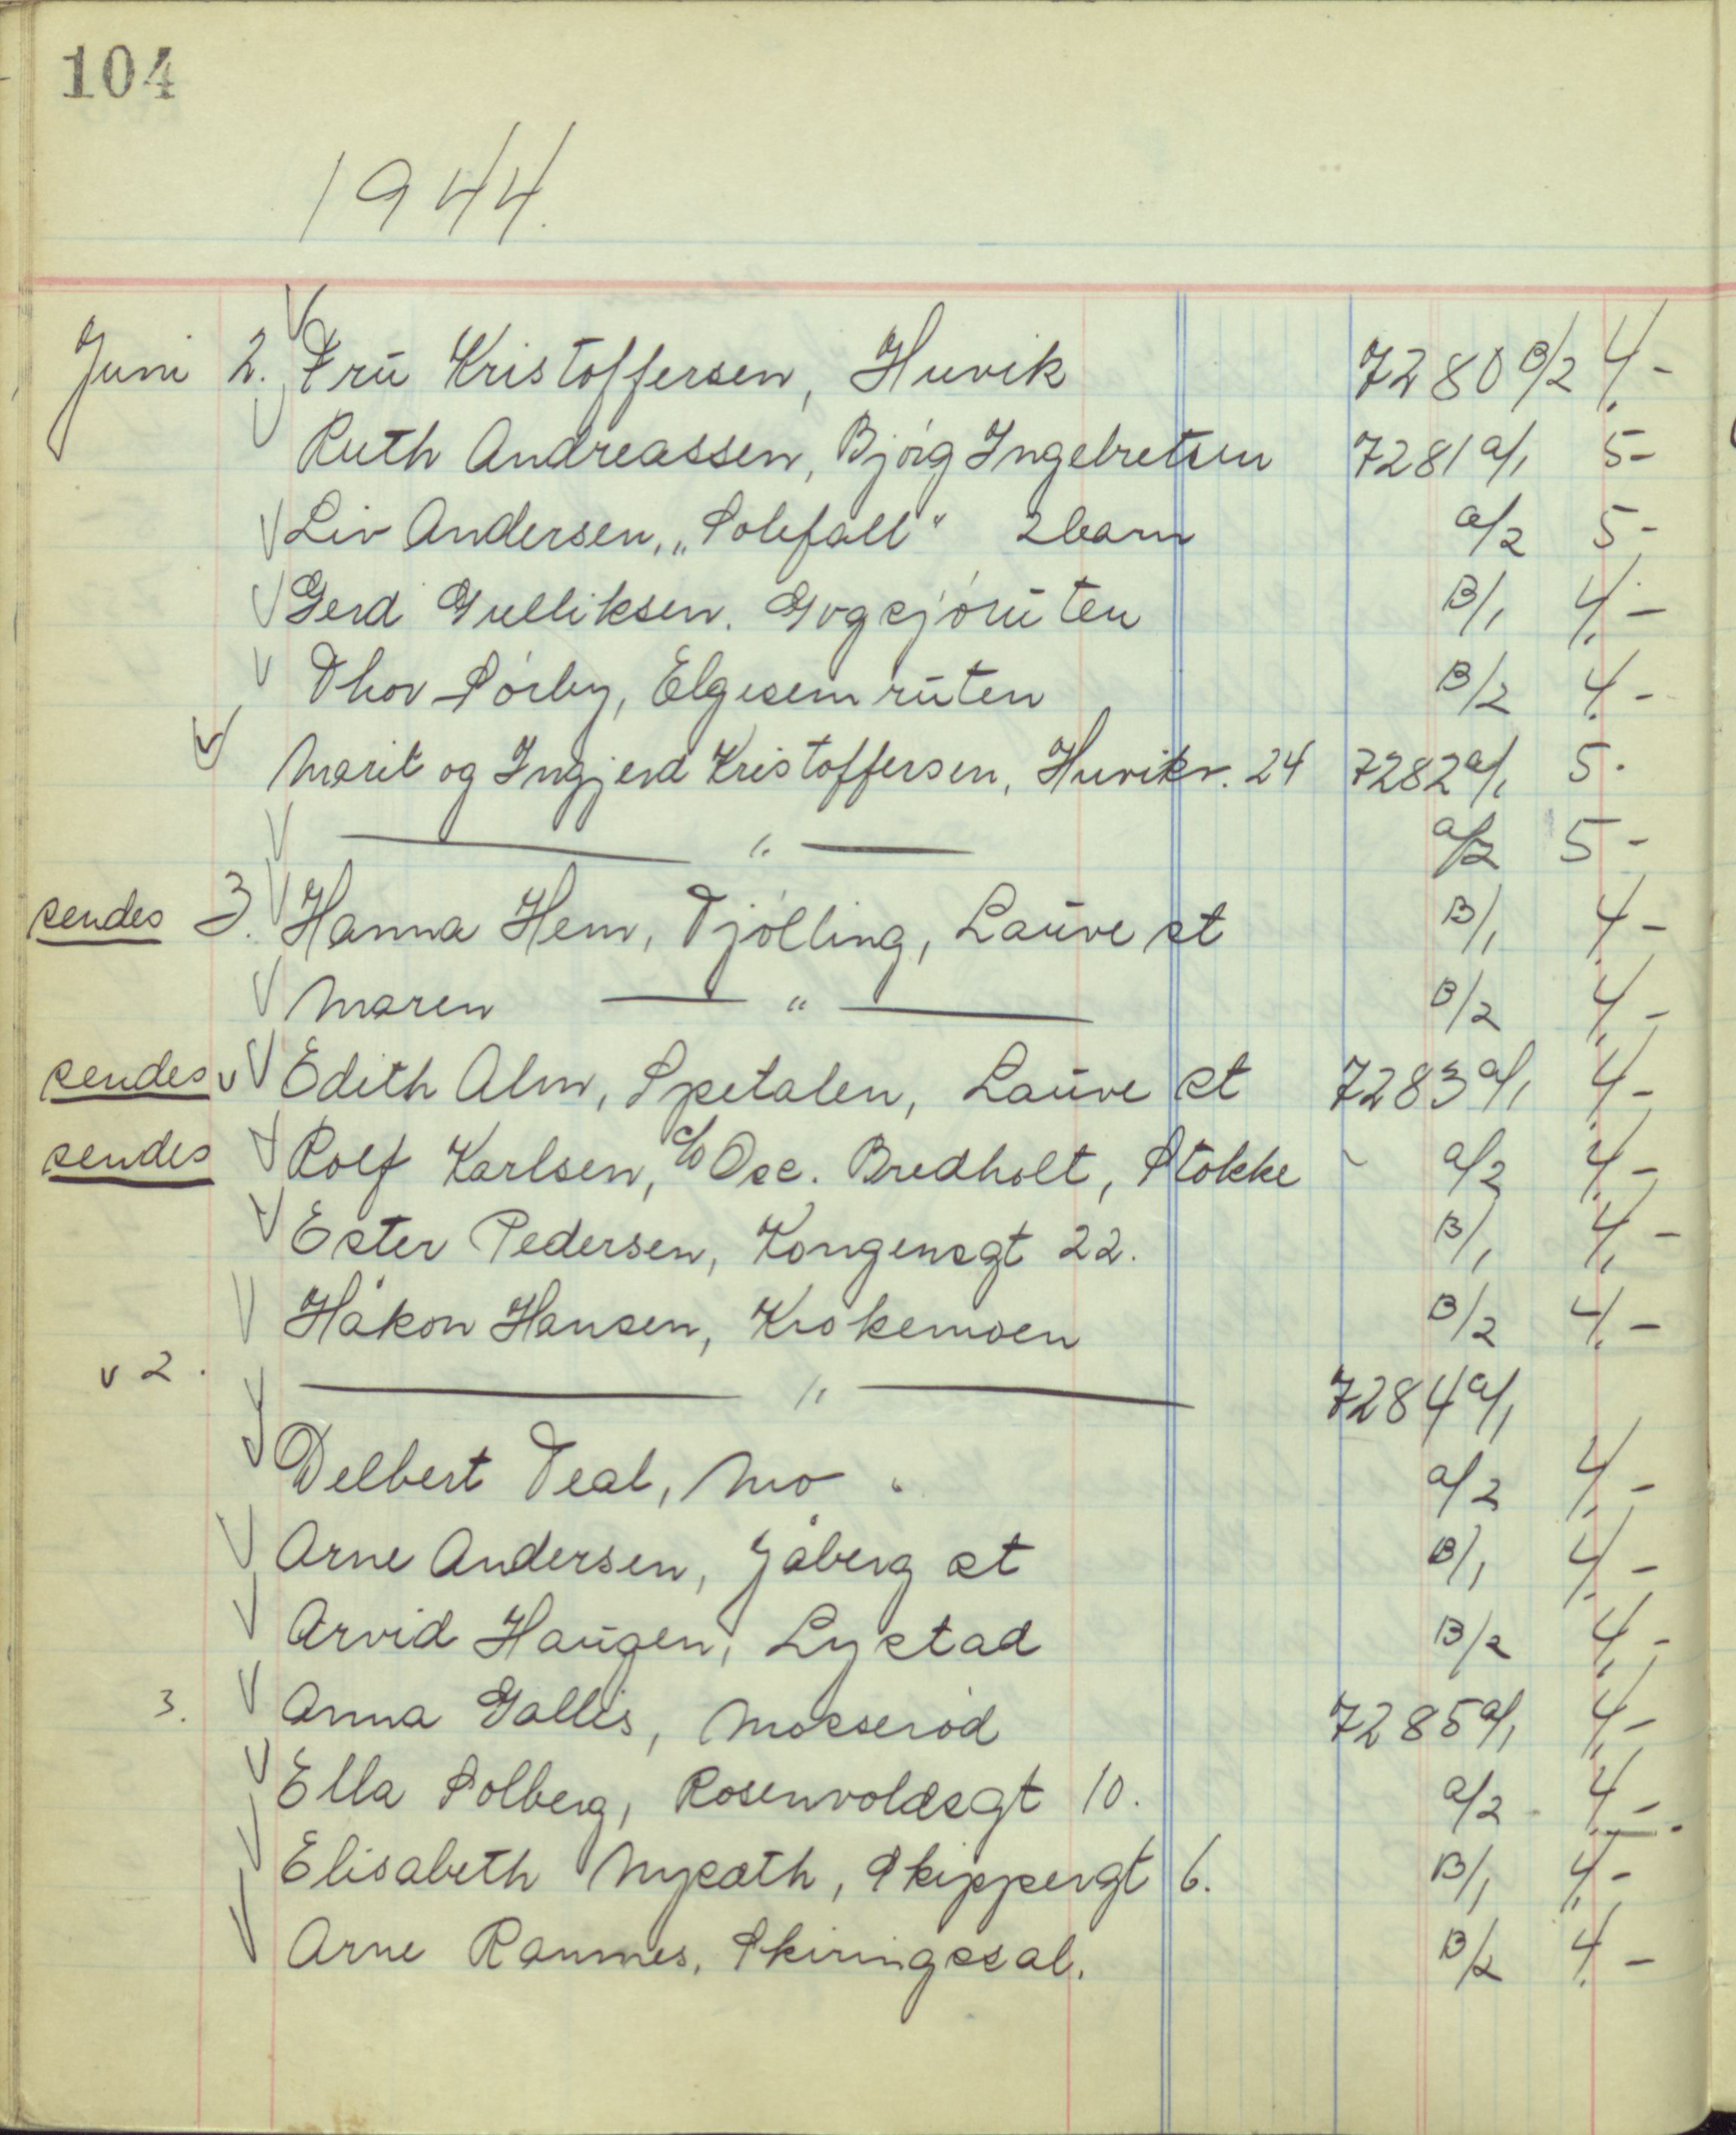 104
1944.
Juni 2. Fru Kristoffersen, Huvik 7280 B/2 4,-
Ruth Andreassen, Bjørg Ingebretsen 7281 a/1 5-
Liv Andersen, „Solefall" 2 barn a/2 5-
Gerd Gulliksen. Gogsjøruten B/1 4,-
Thor Sørby, Elgesemruten B/2 4,-
Marit og Ingjerd Kristoffersen, Huvikv. 24 7282 a/1 5.
— " — a/2 5-
sendes 3. Hanna Hem, Tjølling, Lauve st B/1 4,-
Maren — " — B/2 4,-
sendes v Edith Alm, Spetalen, Lauve st 7283 a/1 4,-
sendes Rolf Karlsen, c/o Osc. Bredholt, Stokke a/2 4,-
Ester Pedersen, Kongensgt 22. B/1 4,-
Håkon Hansen, Krokemoen B/2 4,-
v 2. — " — 7284 a/1
Delbert Teal, Mo a/2 4,-
Arne Andersen, Jåberg st B/1 4,-
Arvid Haugen, Lystad B/2 4,-
3. Anna Gallis, Mosserød 7285 a/1 4,-
Ella Solberg, Rosenvoldsgt 10. a/2 4,-
Elisabeth Nysæth, Skippergt 6. B/1 4,-
Arne Ramnes, Skiringssal. B/2 4,-